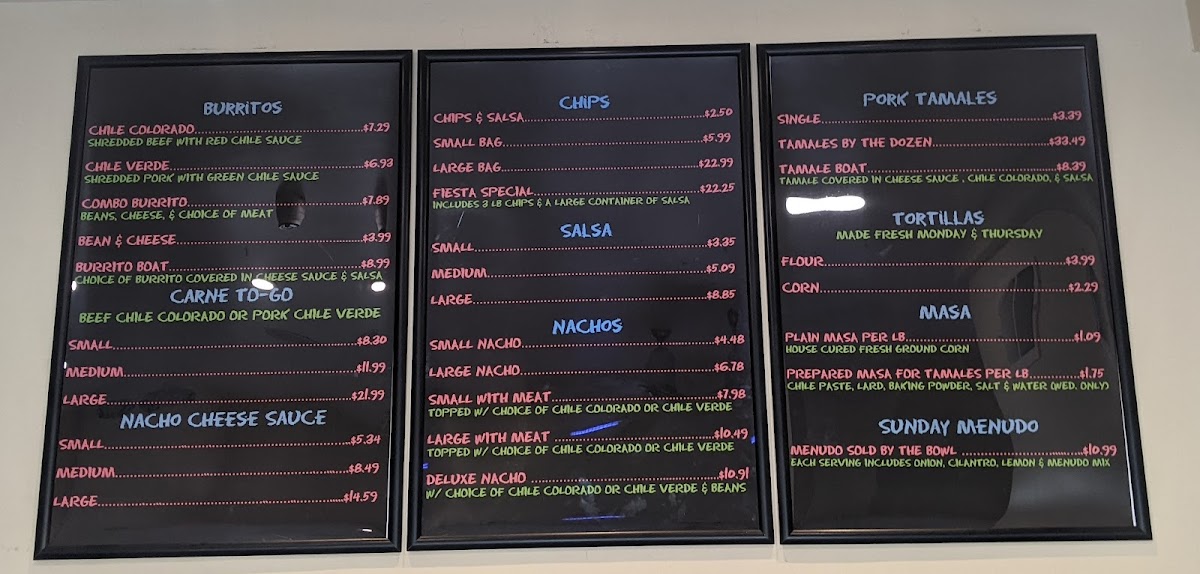 BURRITOS
CHILE COLORADO.......$7.29
SHREDDED BEEF WITH RED CHILE SAUCE
CHILE VERDE.......$6.93
SHREDDED PORK WITH GREEN CHILE SAUCE
COMBO BURRITO.......$7.89
BEANS, CHEESE, & CHOICE OF MEAT
BEAN & CHEESE.......$3.99
BURRITO BOAT.......$8.99
CHOICE OF BURRITO COVERED IN CHEESE SAUCE & SALSA
CARNE TO-GO
BEEF CHILE COLORADO OR PORK CHILE VERDE
SMALL.......$8.30
MEDIUM.......$11.99
LARGE.......$21.99
NACHO CHEESE SAUCE
SMALL.......$5.34
MEDIUM.......$8.49
LARGE.......$14.59
CHIPS
CHIPS & SALSA.......$2.50
SMALL BAG.......$5.99
LARGE BAG.......$22.99
FIESTA SPECIAL.......$22.25
INCLUDES 3 LB CHIPS & A LARGE CONTAINER OF SALSA
SALSA
SMALL.......$3.35
MEDIUM.......$5.09
LARGE.......$8.85
NACHOS
SMALL NACHO.......$4.48
LARGE NACHO.......$6.78
SMALL WITH MEAT.......$7.98
TOPPED W/ CHOICE OF CHILE COLORADO OR CHILE VERDE
LARGE WITH MEAT .......$10.49
TOPPED W/ CHOICE OF CHILE COLORADO OR CHILE VERDE
DELUXE NACHO .......$10.91
W/ CHOICE OF CHILE COLORADO OR CHILE VERDE & BEANS
PORK TAMALES
SINGLE.......$3.39
TAMALES BY THE DOZEN.......$33.49
TAMALE BOAT.......$8.39
TAMALE COVERED IN CHEESE SAUCE , CHILE COLORADO, & SALSA
TORTILLAS
MADE FRESH MONDAY & THURSDAY
FLOUR.......$3.99
CORN.......$2.29
MASA
PLAIN MASA PER LB.......$1.09
HOUSE CURED FRESH GROUND CORN
PREPARED MASA FOR TAMALES PER LB.......$1.75
CHILE PASTE, LARD, BAKING POWDER, SALT & WATER (WED. ONLY)
SUNDAY MENUDO
MENUDO SOLD BY THE BOWL .......$10.99
EACH SERVING INCLUDES ONION, CILANTRO, LEMON & MENUDO MIX